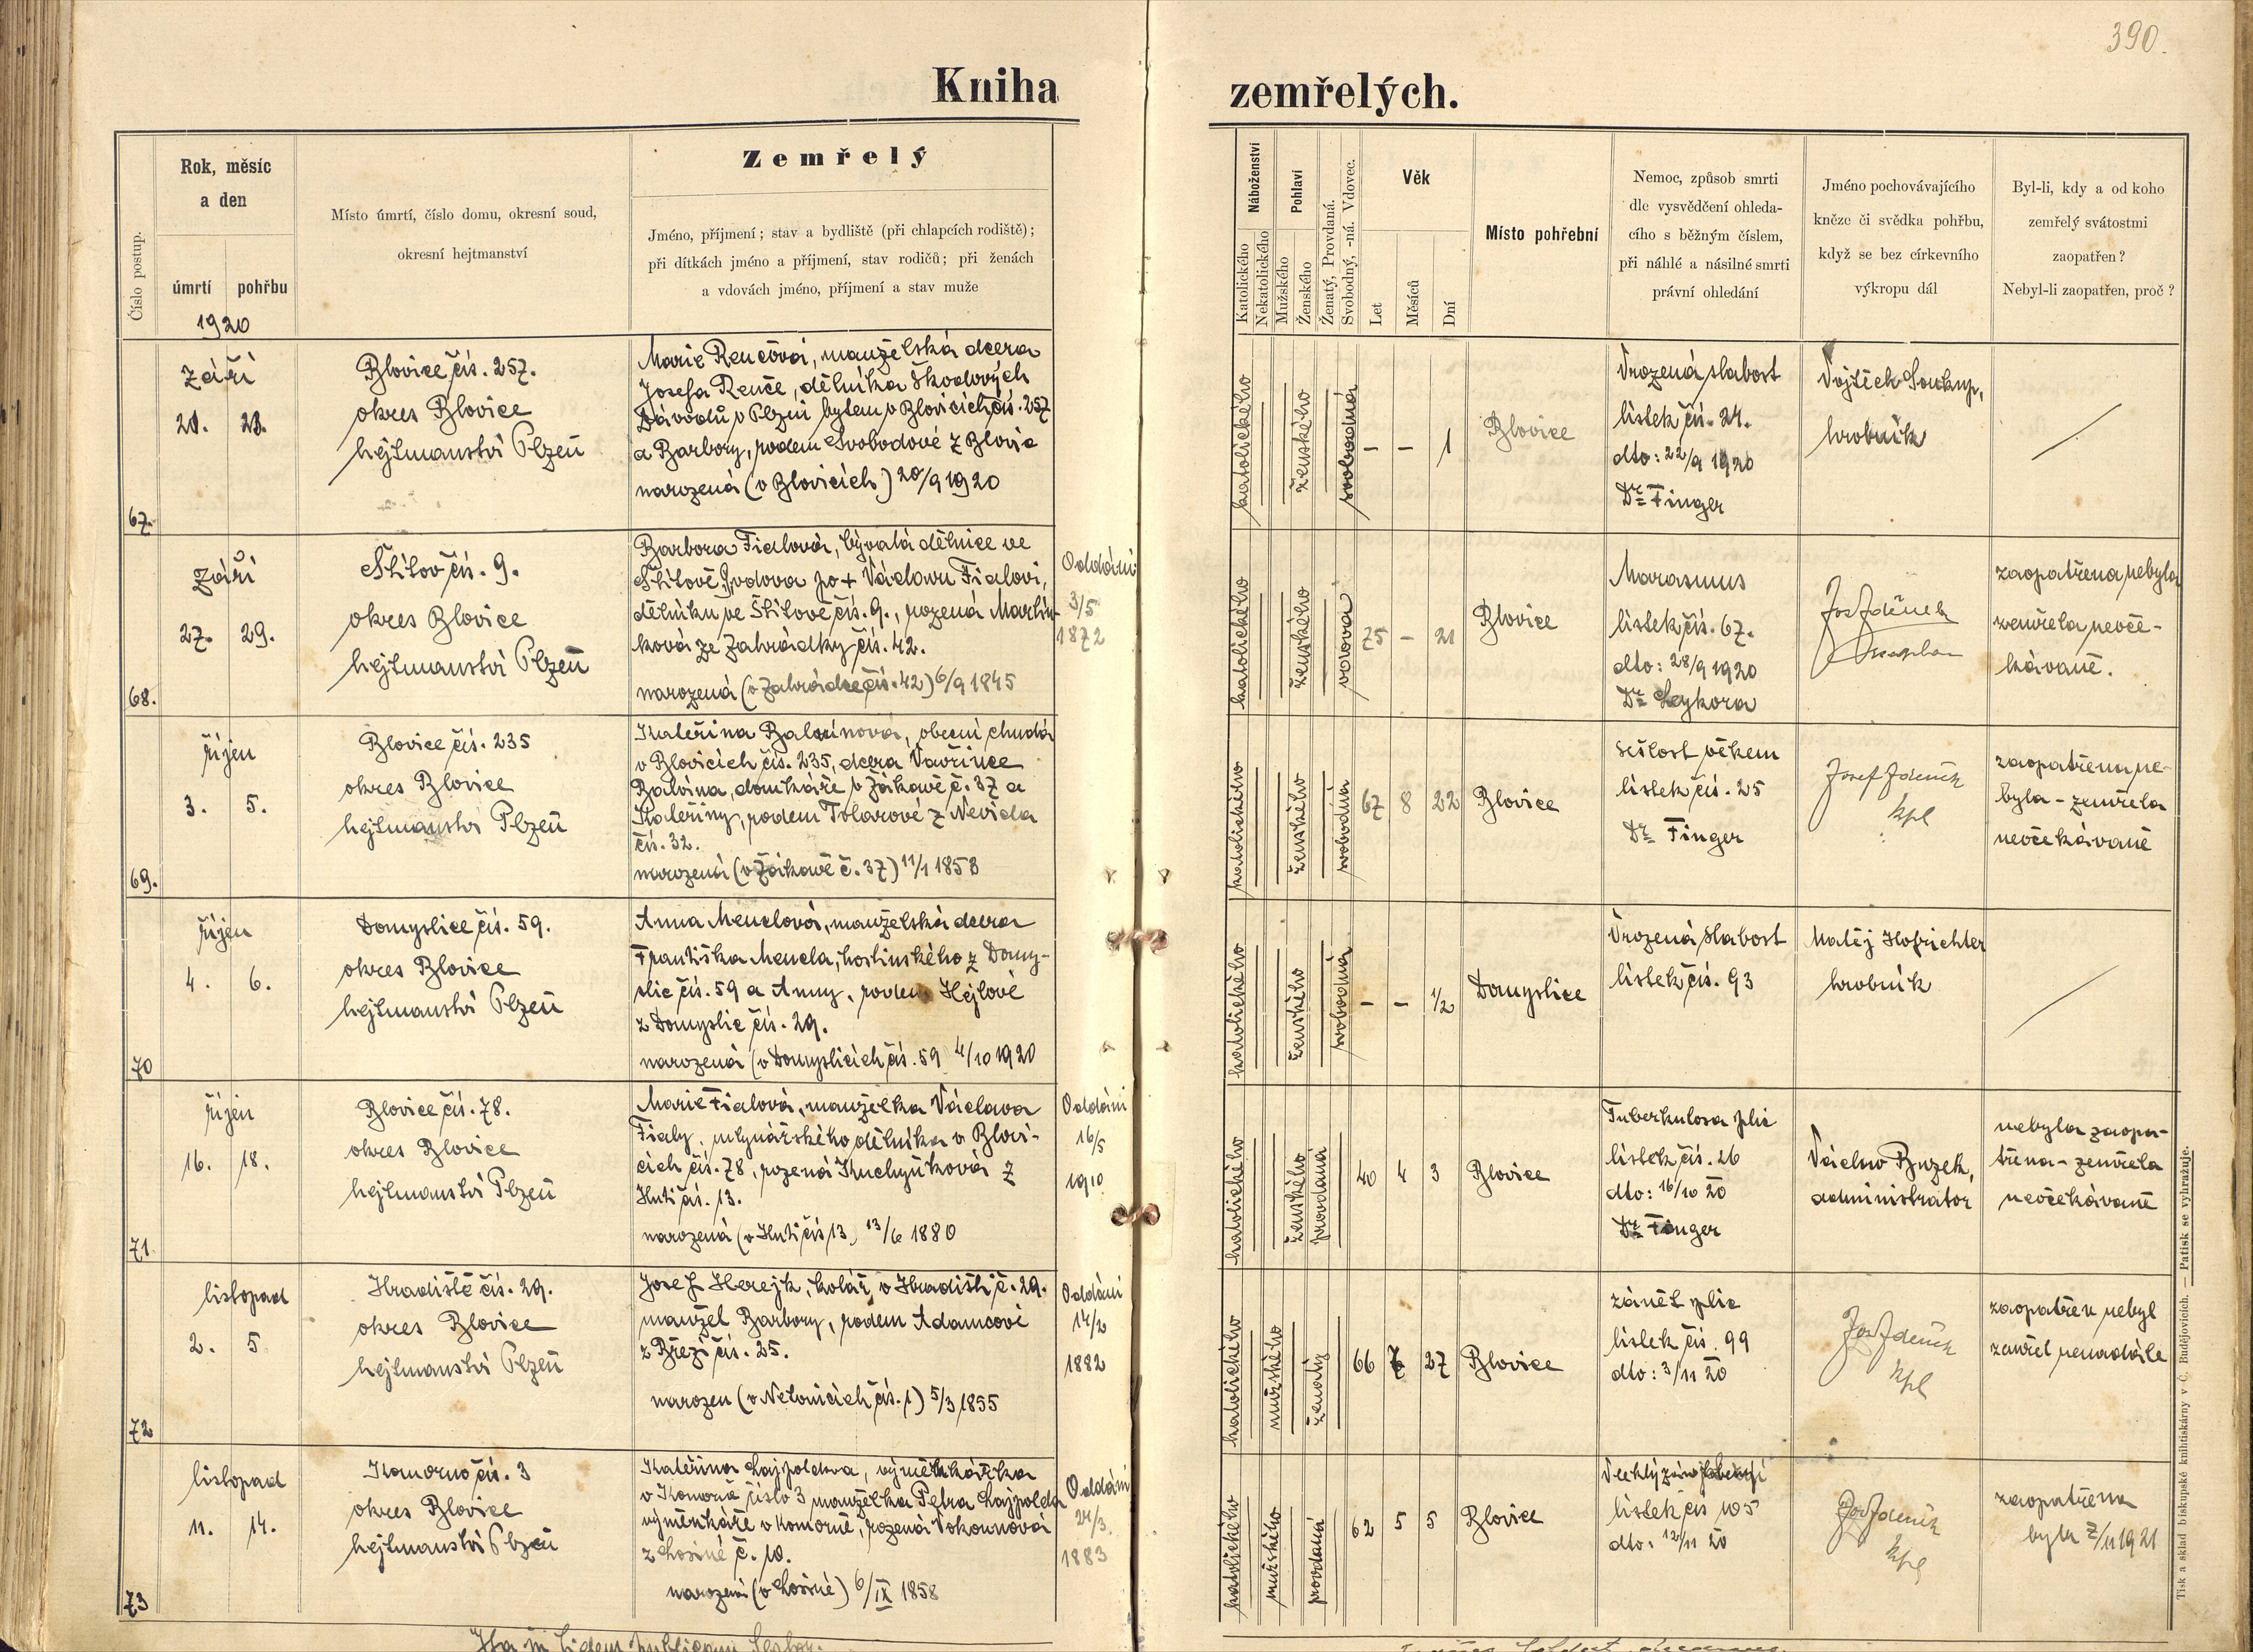 390.
Kniha zemřelých.
Číslo postup.
Rok, měsíc
a den
úmrtí
pohřbu
1920
Místo úmrtí, číslo domu, okresní soud,
okresní hejtmanství
Zemřelý
Jméno, příjmení; stav a bydliště (při chlapcích rodiště);
při dítkách jméno a příjmení, stav rodičů; při ženách
a vdovách jméno, příjmení a stav muže
Náboženství
Katolického
Nekatolického
Pohlaví
Mužského
Ženského
Ženatý, Provdaná.
Svobodný, -ná. Vdovec.
Věk
Let
Měsíců
Dní
Místo pohřební
Nemoc, způsob smrti
dle vysvědčení ohleda-
cího s běžným číslem,
při náhlé a násilné smrti
právní ohledání
Jméno pochovávajícího
kněze či svědka pohřbu,
když se bez církevního
výkropu dál
Byl-li, kdy a od koho
zemřelý svátostmi
zaopatřen?
Nebyl-li zaopatřen, proč?
67.
září
21. 23.
Blovice čís. 257.
okres Blovice
hejtmanství Plzeň
Marie Renčová, manželská dcera
Josefa Renče, dělníka Škodových
závodů v Plzni bytem v Blovicích čís. 257
a Barbory, rodem Svobodové z Blovic
narozená (v Blovicích) 20/9 1920
katolického
ženského
svobodná
– – 1
Blovice
Vrozená slabost
lístek čís. 24.
dto: 22/9 1920
Dr Finger
Vojtěch Soukup,
hrobník
68.
září
27. 29.
Štítov čís. 9.
okres Blovice
hejtmanství Plzeň
Barbora Fialová, bývalá dělnice ve
Štítově, vdova po + Václavu Fialovi,
dělníku ve Štítově čís. 9., rozená Martín-
ková ze Zahrádky čís. 42.
narozená (v Zahrádce čís. 42) 6/9 1845
Oddáni
3/5
1872
katolického
ženského
vdova
75 – 21
Blovice
Marasmus
lístek čís. 67.
dto: 28/9 1920
Dr Sýkora
Jos Zdeněk
kaplan
zaopatřena nebyla
zemřela neoče-
kávaně.
69.
říjen
3. 5.
Blovice čís. 235
okres Blovice
hejtmanství Plzeň
Kateřina Balvínová, obecní chudá
v Blovicích čís. 235, dcera Vavřince
Balvína, domkáře v Žákavě č. 37 a
Kateřiny, rodem Tolarové z Nevida
čís. 32.
narozená (v Žákavě č. 37) 11/1 1853
katolického
ženského
svobodná
67 8 22
Blovice
sešlost věkem
lístek čís. 25
Dr Finger
Josef Zdeněk
kpl
zaopatřena ne-
byla - zemřela
neočekávaně
70
říjen
4. 6.
Domyslice čís. 59.
okres Blovice
hejtmanství Plzeň
Anna Menclová, manželská dcera
Františka Mencla, hostinského z Domy-
slic čís. 59 a Anny, rodem Hejlové
z Domyslic čís. 29.
narozená (v Domyslicích čís. 59 4/10 1920
katolického
ženského
svobodná
– – 1/2
Domyslice
Vrozená slabost
lístek čís. 93
Matěj Hofrichter
hrobník
71.
říjen
16. 18.
Blovice čís. 78.
okres Blovice
hejtmanství Plzeň
Marie Fialová, manželka Václava
Fialy, mlynářského dělníka v Blovi-
cích čís. 78, rozená Kuchyňková z
Hutí čís. 13.
narozená (v Hutí čís 13) 13/6 1880
Oddáni
16/5
1910
katolického
ženského
provdaná
40 4 3
Blovice
Tuberkulosa plic
lístek čís. 26
dto: 16/10 20
Dr Finger
Václav Buzek,
administrator
nebyla zaopa-
třena - zemřela
neočekávaně
72
listopad
2. 5
Hradiště čís. 29.
okres Blovice
hejtmanství Plzeň
Josef Herejk, kolář, v Hradišti č. 29.
manžel Barbory, rodem Adamcové
z Březí čís. 25.
narozen (v Netonicích čís. 1) 5/3 1855
Oddáni
14/2
1882
katolického
mužského
ženatý
66 7 27
Blovice
zánět plic
lístek čís. 99
dto: 3/11 20
Jos Zdeněk
kpl
zaopatřen nebyl
zemřel nenadále
73
listopad
11. 14.
Komorno čís. 3
okres Blovice
hejtmanství Plzeň
Kateřina Lajpoldova, výměnkářka
v Komorně číslo 3 manželka Petra Lajpolda
výměnkáře v Komorně, rozená Vokounová
z Losiné č. 10.
narozená (v Losiné) 6/IX 1858
Oddáni
24/3
1883
katolického
mužského
provdaná
62 5 5
Blovice
lístek čís 105
dto: 12/11 20
Jos Zdeněk
kpl
zaopatřena
byla 7/11 1921
Tisk a sklad biskupské knihtiskárny v Č. Budějovicích. — Patisk se vyhražuje.